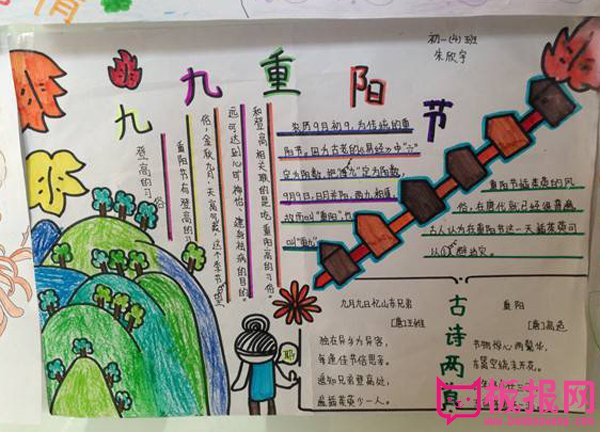 初一(4)班
朱欣宇
九九重阳节
登高的习俗
重阳节有登高的习
俗,金秋九月,天高气爽,这个季节
远可达到心旷神怡、健身祛病的目的
和登高相关联的是吃重阳高的习俗。
农历9月初9,为传统的重
阳节。因为古老的《易经》中"六"
定为阴数,把"九"定为阳数,
9月9日,日月并阳,两九相重,
故而叫"重阳",也
叫"重九"
重阳节插茱萸的风
俗,在唐代就已经很普遍
古人认为在重阳节这一天插茱萸可
以避难消灾。
古诗两首
九月九日忆山东兄弟
[唐]王维
独在异乡为异客,
每逢佳节倍思亲。
遥知兄弟登高处,
遍插茱萸少一人。
重阳
[唐]高适
节物惊心两鬓华,
东篱空绕未开花。
耶
板报网